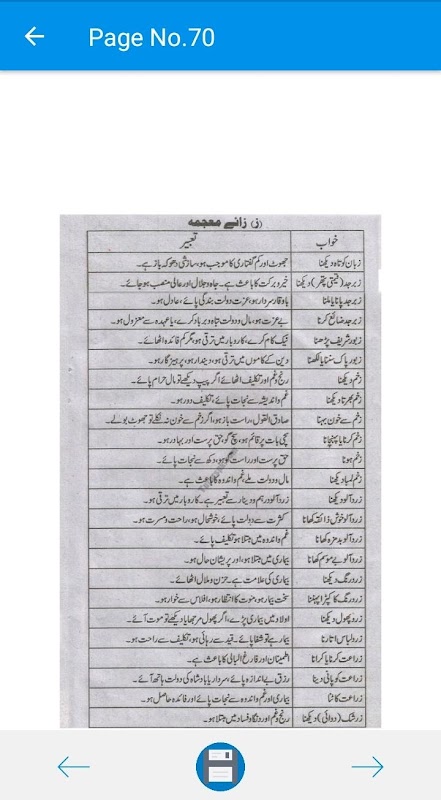 Page No.70
(ز) زائے معجمہ
خواب تعبیر
زبان کوتاہ دیکھنا جھوٹ اور کم گفتاری کا موجب ہو، سازشی دھوکہ باز ہے۔
زبرجد (قیمتی پتھر) دیکھنا خیر و برکت کا باعث ہے۔ جاہ و جلال اور عالی منصب ہو جائے۔
زبرجد پانا یا ملنا باوقار سردار ہو، عزت دولت بندگی پائے، عادل ہو۔
زبرجد ضائع کرنا بے عزت ہو، مال و دولت تباہ و برباد کرے، یا عہدہ سے معزول ہو۔
زبور شریف پڑھنا نیک کام کرے، کاروبار میں ترقی ہو، مگر کم فائدہ اٹھائے۔
زبور پاک سننا یا لکھنا دین کے کاموں میں ترقی ہو، دیندار ہو، پرہیز گار ہو۔
زخم دیکھنا رنج و غم اور تکلیف اٹھائے اگر پیپ دیکھے تو مال حرام پائے۔
زخم بھرتا دیکھنا غم و اندیشہ سے نجات پائے، تکلیف دور ہو۔
زخم سے خون بہنا صادق القول، راست باز ہو، اگر زخم سے خون نہ نکلے تو جھوٹ بولے۔
زخم کرنا یا پہنچانا سچی بات پر قائم ہو، سچ گو، حق پرست اور بہادر ہو۔
زخم ہونا حق پرست اور راست گو ہو، دکھ سے نجات پائے۔
زخم لمبا دیکھنا مال و دولت ملے، غم و اندوہ کا باعث ہے۔
زرد آلو دیکھنا زرد آلو درہم و دینار سے تعبیر ہے۔ کاروبار میں ترقی ہو۔
زرد آلو خوش ذائقہ کھانا کثرت سے دولت پائے، خوشحال ہو، راحت و مسرت ہو۔
زرد آلو بدمزہ کھانا غم و اندوہ میں مبتلا ہو تکلیف پائے۔
زرد آلو بے موسم کھانا بیماری میں مبتلا ہو، اور پریشان حال ہو۔
زرد رنگ دیکھنا بیماری کی علامت ہے۔ حزن و ملال اٹھائے۔
زرد رنگ کا کپڑا پہننا سخت بیمار ہو، موت کا انتظار ہو، افلاس سے خوار ہو۔
زرد پھول دیکھنا اولاد میں بیماری پڑے، اگر پھول مرجھایا دیکھے تو موت آئے۔
زرد لباس اتارنا بیمار ہے تو شفا پائے۔ قید سے رہائی ہو، تکلیف سے راحت ہو۔
زراعت کرنا یا کرانا اطمینان اور فارغ البالی کا باعث ہے۔
زراعت کو پانی دینا رزق بے اندازہ پائے، سردار یا بادشاہ کی دولت ہاتھ آئے۔
زراعت کاٹنا بیماری اور غم و اندوہ سے نجات پائے اور فائدہ حاصل ہو۔
زرشک (دوائی) دیکھنا رنج و غم اور دنگا و فساد میں مبتلا ہو۔